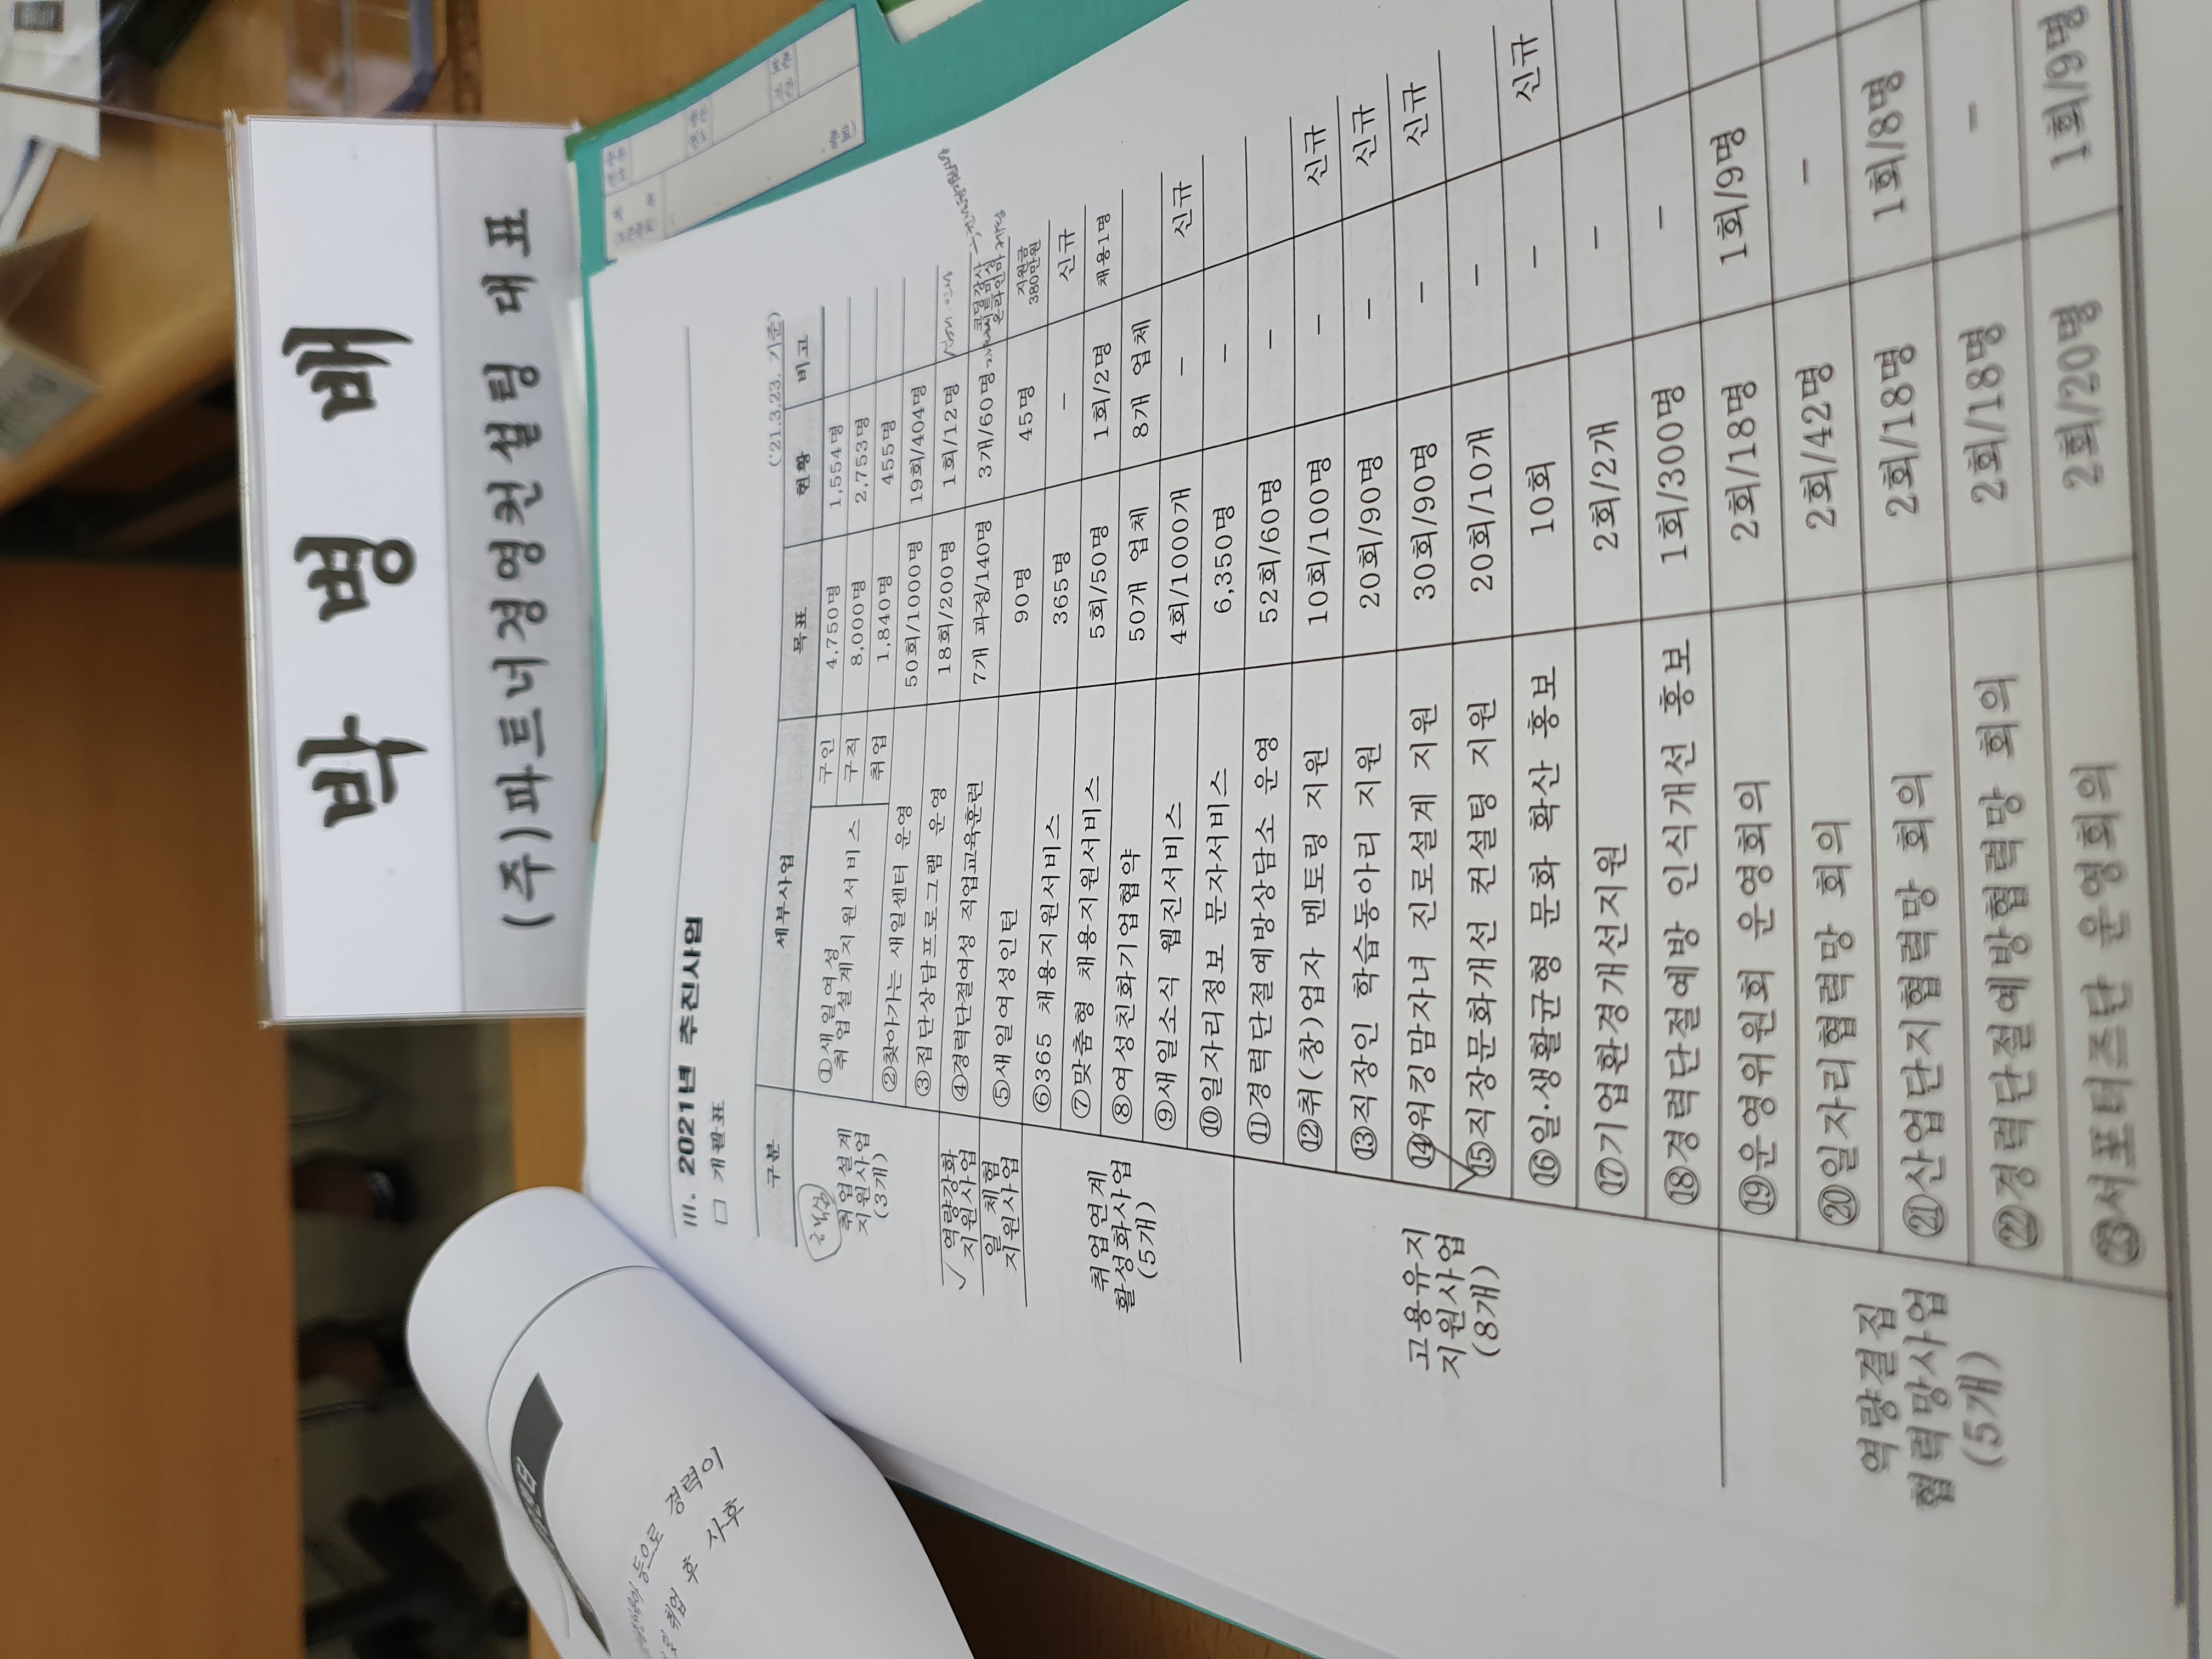 박 병 배
(주)파트너경영컨설팅 대표
III. 2021년 추진사업
□ 개괄표
('21.3.23. 기준)
구분 세부사업 목표 현황 비고
취업설계
지원사업
(3개)
①새일여성
취업설계지원서비스
구인 4,750명 1,554명
구직 8,000명 2,753명
취업 1,840명 455명
②찾아가는 새일센터 운영 50회/1000명 19회/404명
③집단상담프로그램 운영 18회/200명 1회/12명
역량강화
지원사업
④경력단절여성 직업교육훈련 7개 과정/140명 3개/60명
코딩강사
온라인마케팅
일 체험
지원사업
⑤새일여성인턴 90명 45명 지원금
380만원
취업연계
활성화사업
(5개)
⑥365 채용지원서비스 365명 - 신규
⑦맞춤형 채용지원서비스 5회/50명 1회/2명 채용1명
⑧여성친화기업협약 50개 업체 8개 업체
⑨새일소식 웹진서비스 4회/1000개 - 신규
⑩일자리정보 문자서비스 6,350명 -
고용유지
지원사업
(8개)
⑪경력단절예방상담소 운영 52회/60명 -
⑫취(창)업자 멘토링 지원 10회/100명 - 신규
⑬직장인 학습동아리 지원 20회/90명 - 신규
⑭워킹맘자녀 진로설계 지원 30회/90명 - 신규
⑮직장문화개선 컨설팅 지원 20회/10개 -
⑯일·생활균형 문화 확산 홍보 10회 - 신규
⑰기업환경개선지원 2회/2개 -
⑱경력단절예방 인식개선 홍보 1회/300명 -
역량결집
협력망사업
(5개)
⑲운영위원회 운영회의 2회/18명 1회/9명
⑳일자리협력망 회의 2회/42명 -
㉑산업단지협력망 회의 2회/18명 1회/8명
㉒경력단절예방협력망 회의 2회/18명 -
㉓서포터즈단 운영회의 2회/20명 1회/9명
등으로 경력이
취업 후 사후